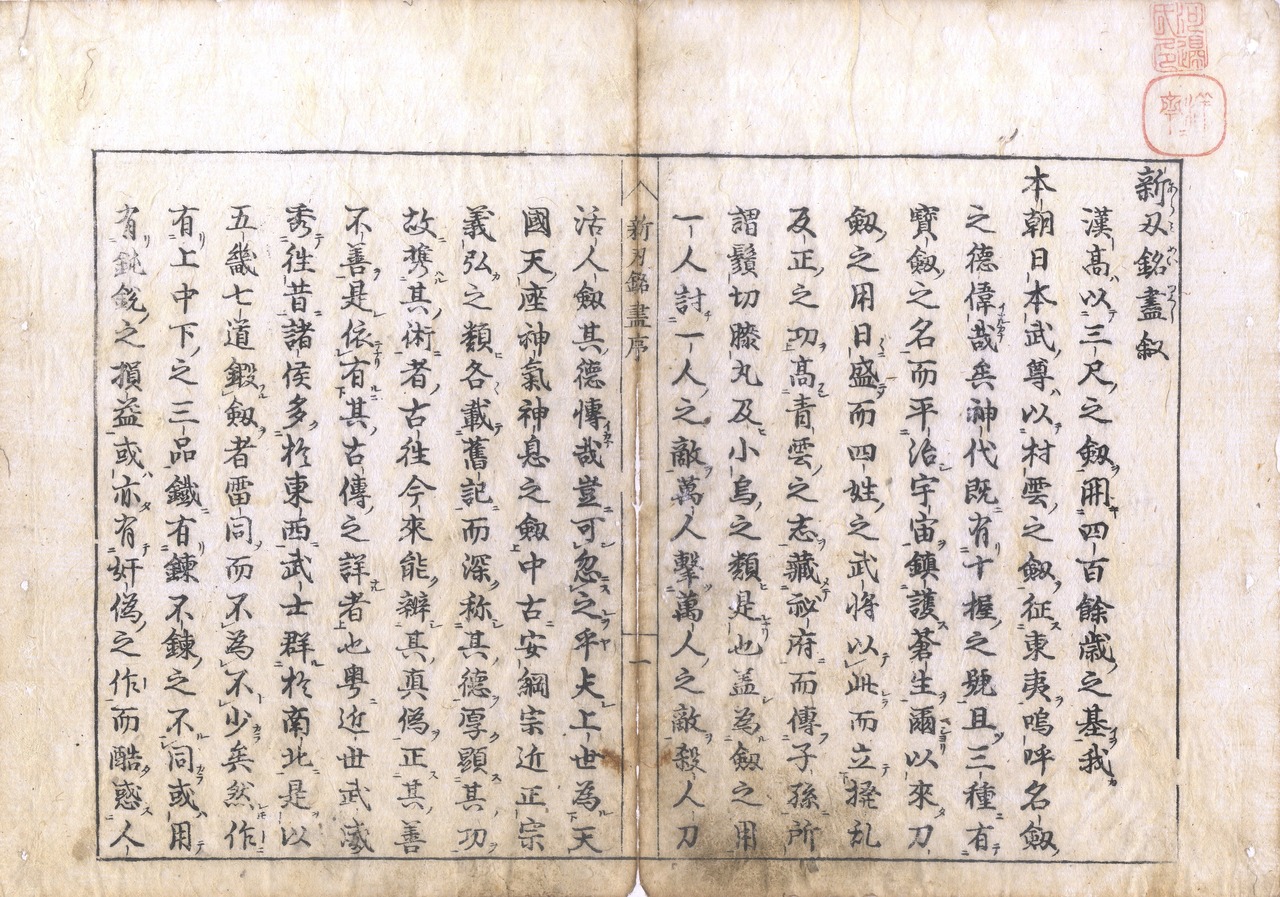 新刃銘盡叙
漢髙以三尺之劔開四百餘歳之基我
本朝日本武尊以村雲之劔征東夷嗚呼名劔
之德偉哉矣神代既有十握之號且三種有
寶劔之名而平治宇宙鎮護蒼生爾以來刀
劔之用日盛而四姓之武将以此而立撥乱
反正之功髙青雲之志藏祕府而傳子孫所
謂鬚切膝丸及小烏之類是也盖為劔之用
一人討一人之敵萬人擊萬人之敵殺人刀
新刃銘盡序
一
活人劔其德愽哉豈可忽之乎夫上世為天
國天座神氣神息之劔中古安綱宗近正宗
義弘之類各載舊記而深称其德厚顕其功
故携其術者古徃今來能辨其真偽正其善
不善是依有其古傳之詳者也粤近世武威
秀徃昔諸侯多於東西武士群於南北是以
五畿七道鍜劔者雷同而不為不少矣然作
有上中下之三品鐵有鍊不鍊之不同或用
有鈍銳之損益或亦有奸偽之作而酷惑人